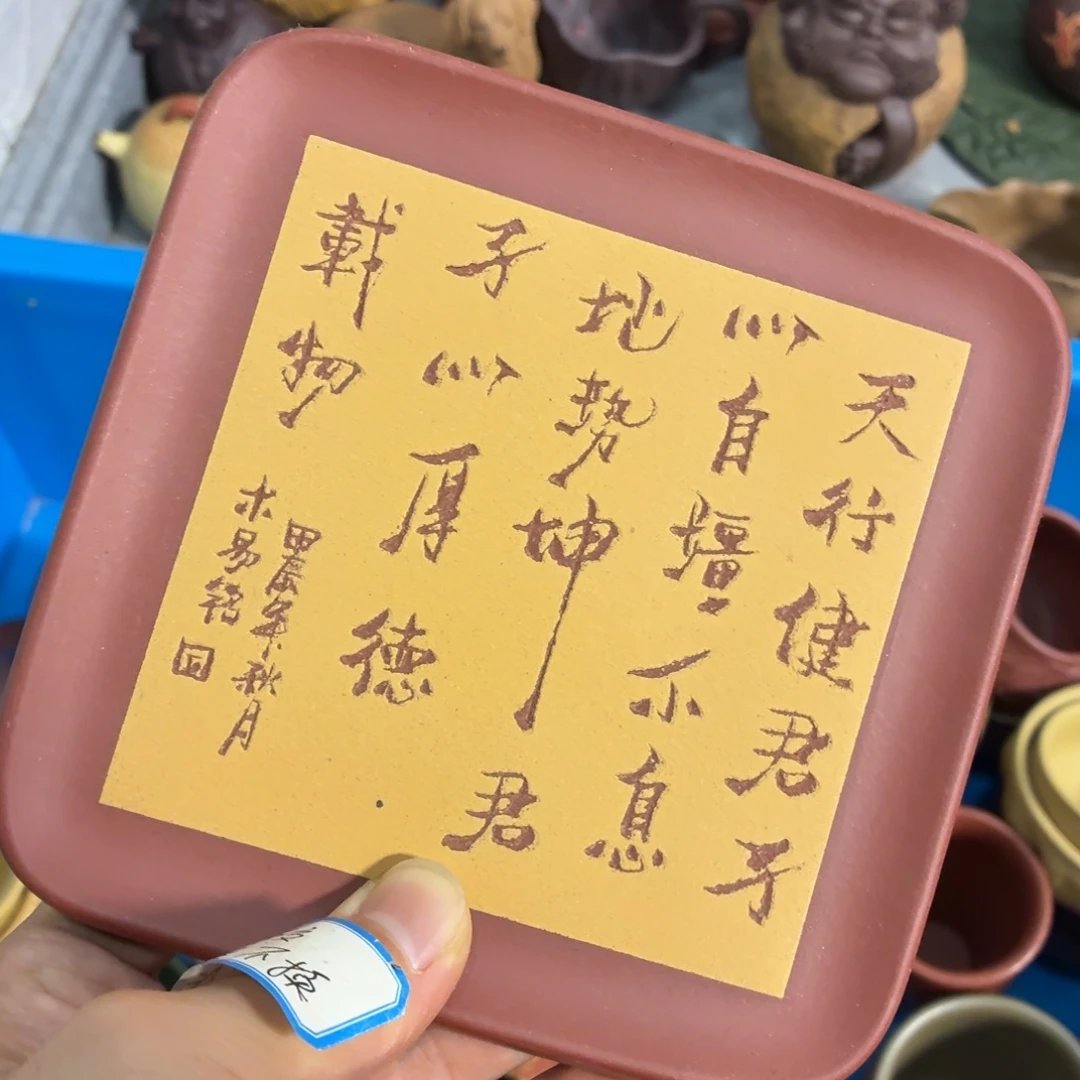 天行健君子
以自彊不息
地勢坤君
子以厚德
載物
甲辰年秋月
木易銘
不换